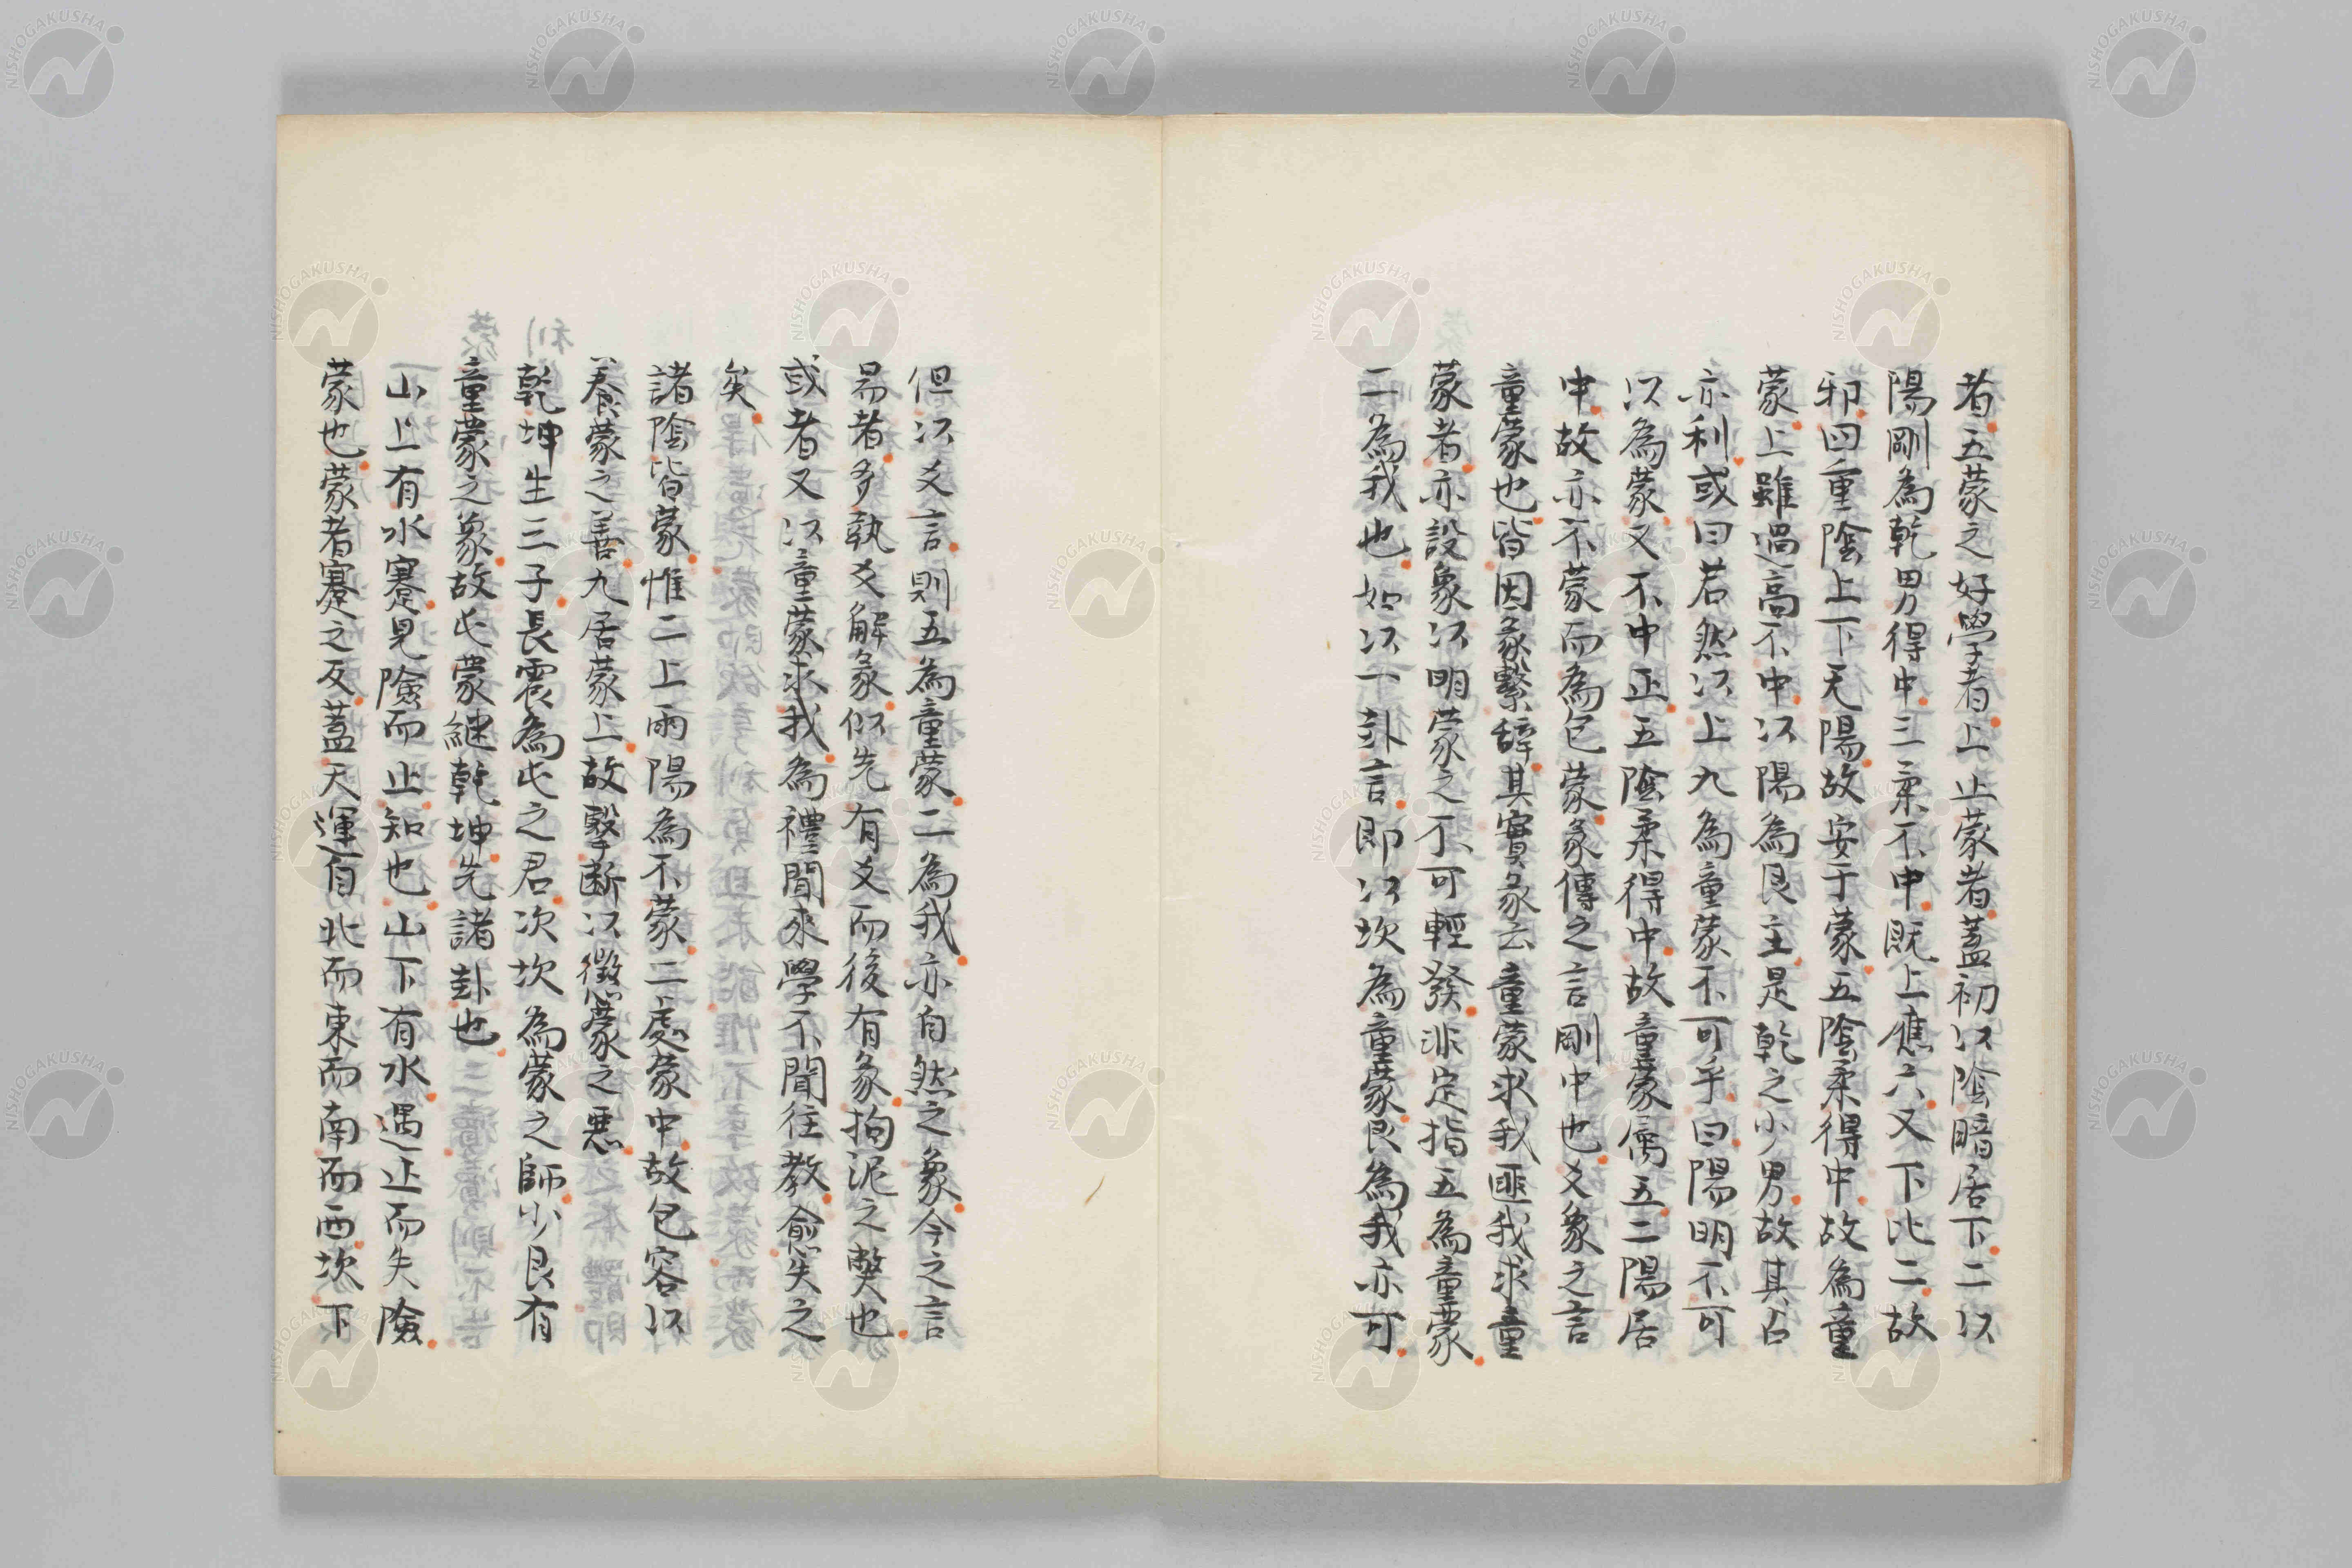 者五蒙之好學者上止蒙者蓋初以陰暗居下二以
陽剛為乾男得中三柔不中既上應六又下比二故
邪四重陰上下无陽故安于蒙五陰柔得中故為童
蒙上雖過高不中以陽為艮主是乾之少男故其占
亦利或曰若然以上九為童蒙不可乎曰陽明不可
以為蒙又不中正五陰柔得中故童蒙属五二陽居
中故亦不蒙而為包蒙彖傳之言剛中也爻象之言
童蒙也皆因彖繫辞其實彖云童蒙求我匪我求童
蒙者亦設象以明蒙之不可輕發非定指五為童蒙
二為我也如以一卦言即以坎為童蒙艮為我亦可
但以爻言則五為童蒙二為我亦自然之象今之言
易者多執爻解彖似先有爻而後有彖拘泥之獘也
或者又以童蒙求我為禮聞來學不聞往教愈失之
矣
諸陰皆蒙惟二上兩陽為不蒙二處蒙中故包容以
養蒙之善九居蒙上故擊断以懲蒙之惡
乾坤生三子長震為屯之君次坎為蒙之師少艮有
童蒙之象故屯蒙継乾坤先諸卦也
山上有水蹇見險而止知也山下有水遇止而失險
蒙也蒙者蹇之反蓋天運自北而東而南而西坎下
NISHOGAKUSHA